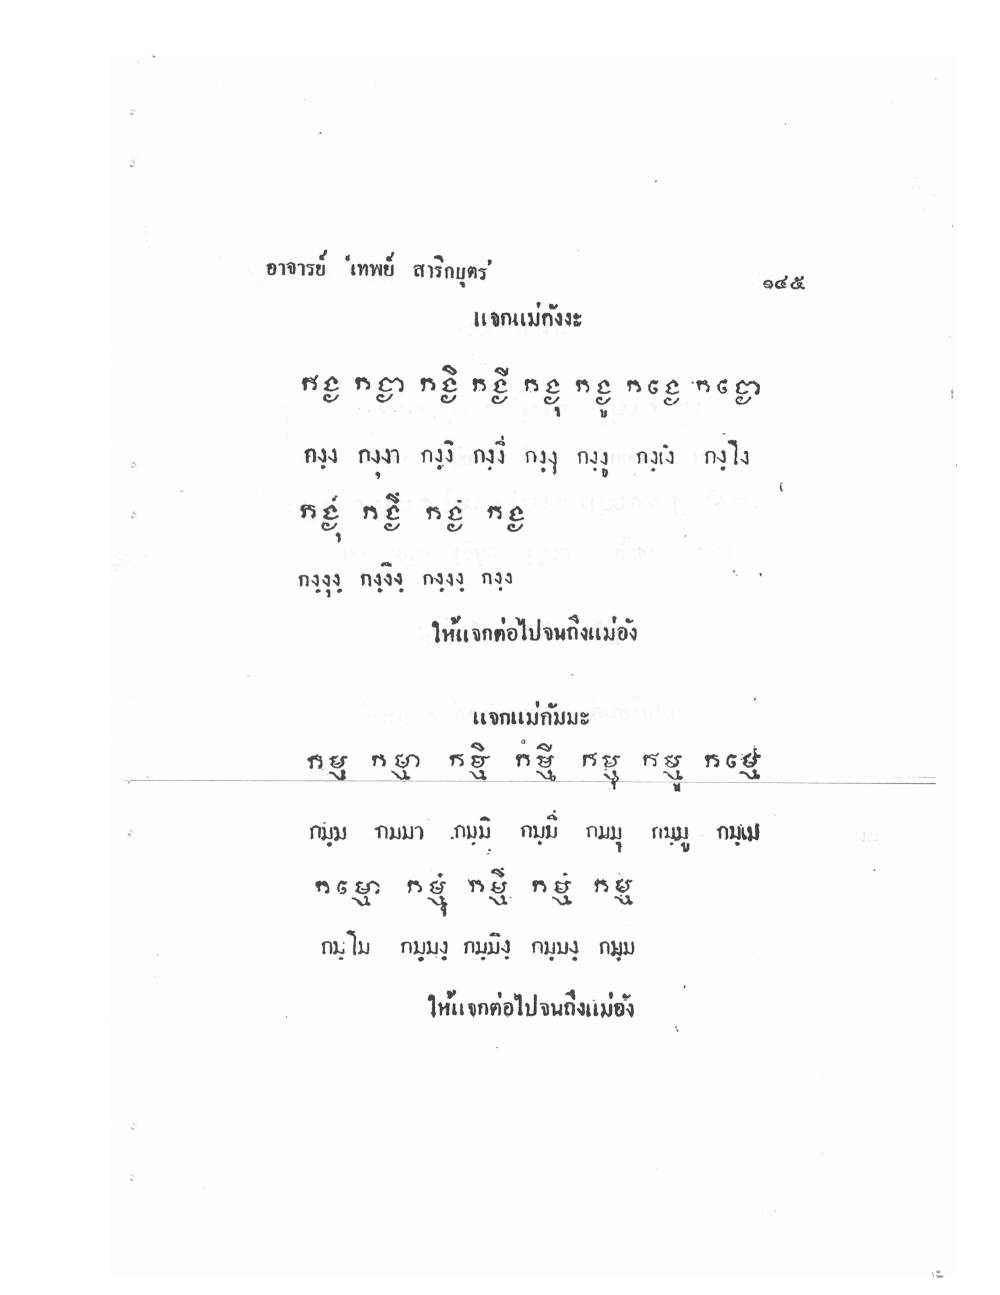 อาจารย์ ์เทพย์ สาริกบุตร่ ๑๔๕
แจกแม่กังงะ
កង្ង កង្ងា កង្ងិ កង្ងី កង្ងុ កង្ងូ កង្ងេ កង្ងោ
กงฺง กงฺงุา กงฺงิ กงฺงี กงฺงุ กงฺงู กงฺเง กงฺโง
កង្ងុំ កង្ងឹ កង្ងំ កង្ង
กงฺงุงฺ กงฺงิงฺ กงฺงงฺ กงฺง
ให้แจกต่อไปจนถึงแม่อัง
แจกแม่กัมมะ
កម្ម កម្មា កម្មិ កម្មី កម្មុ កម្មូ កម្មេ
กมฺม กมมา กมฺมิ กมฺมี กมมุ กมฺมู กมฺเม
កម្មោ កម្មុំ កម្មឹ កម្មំ កម្ម
กมฺโม กมฺมงฺ กมฺมิงฺ กมฺมงฺ กมฺม
ให้แจกต่อไปจนถึงแม่อัง